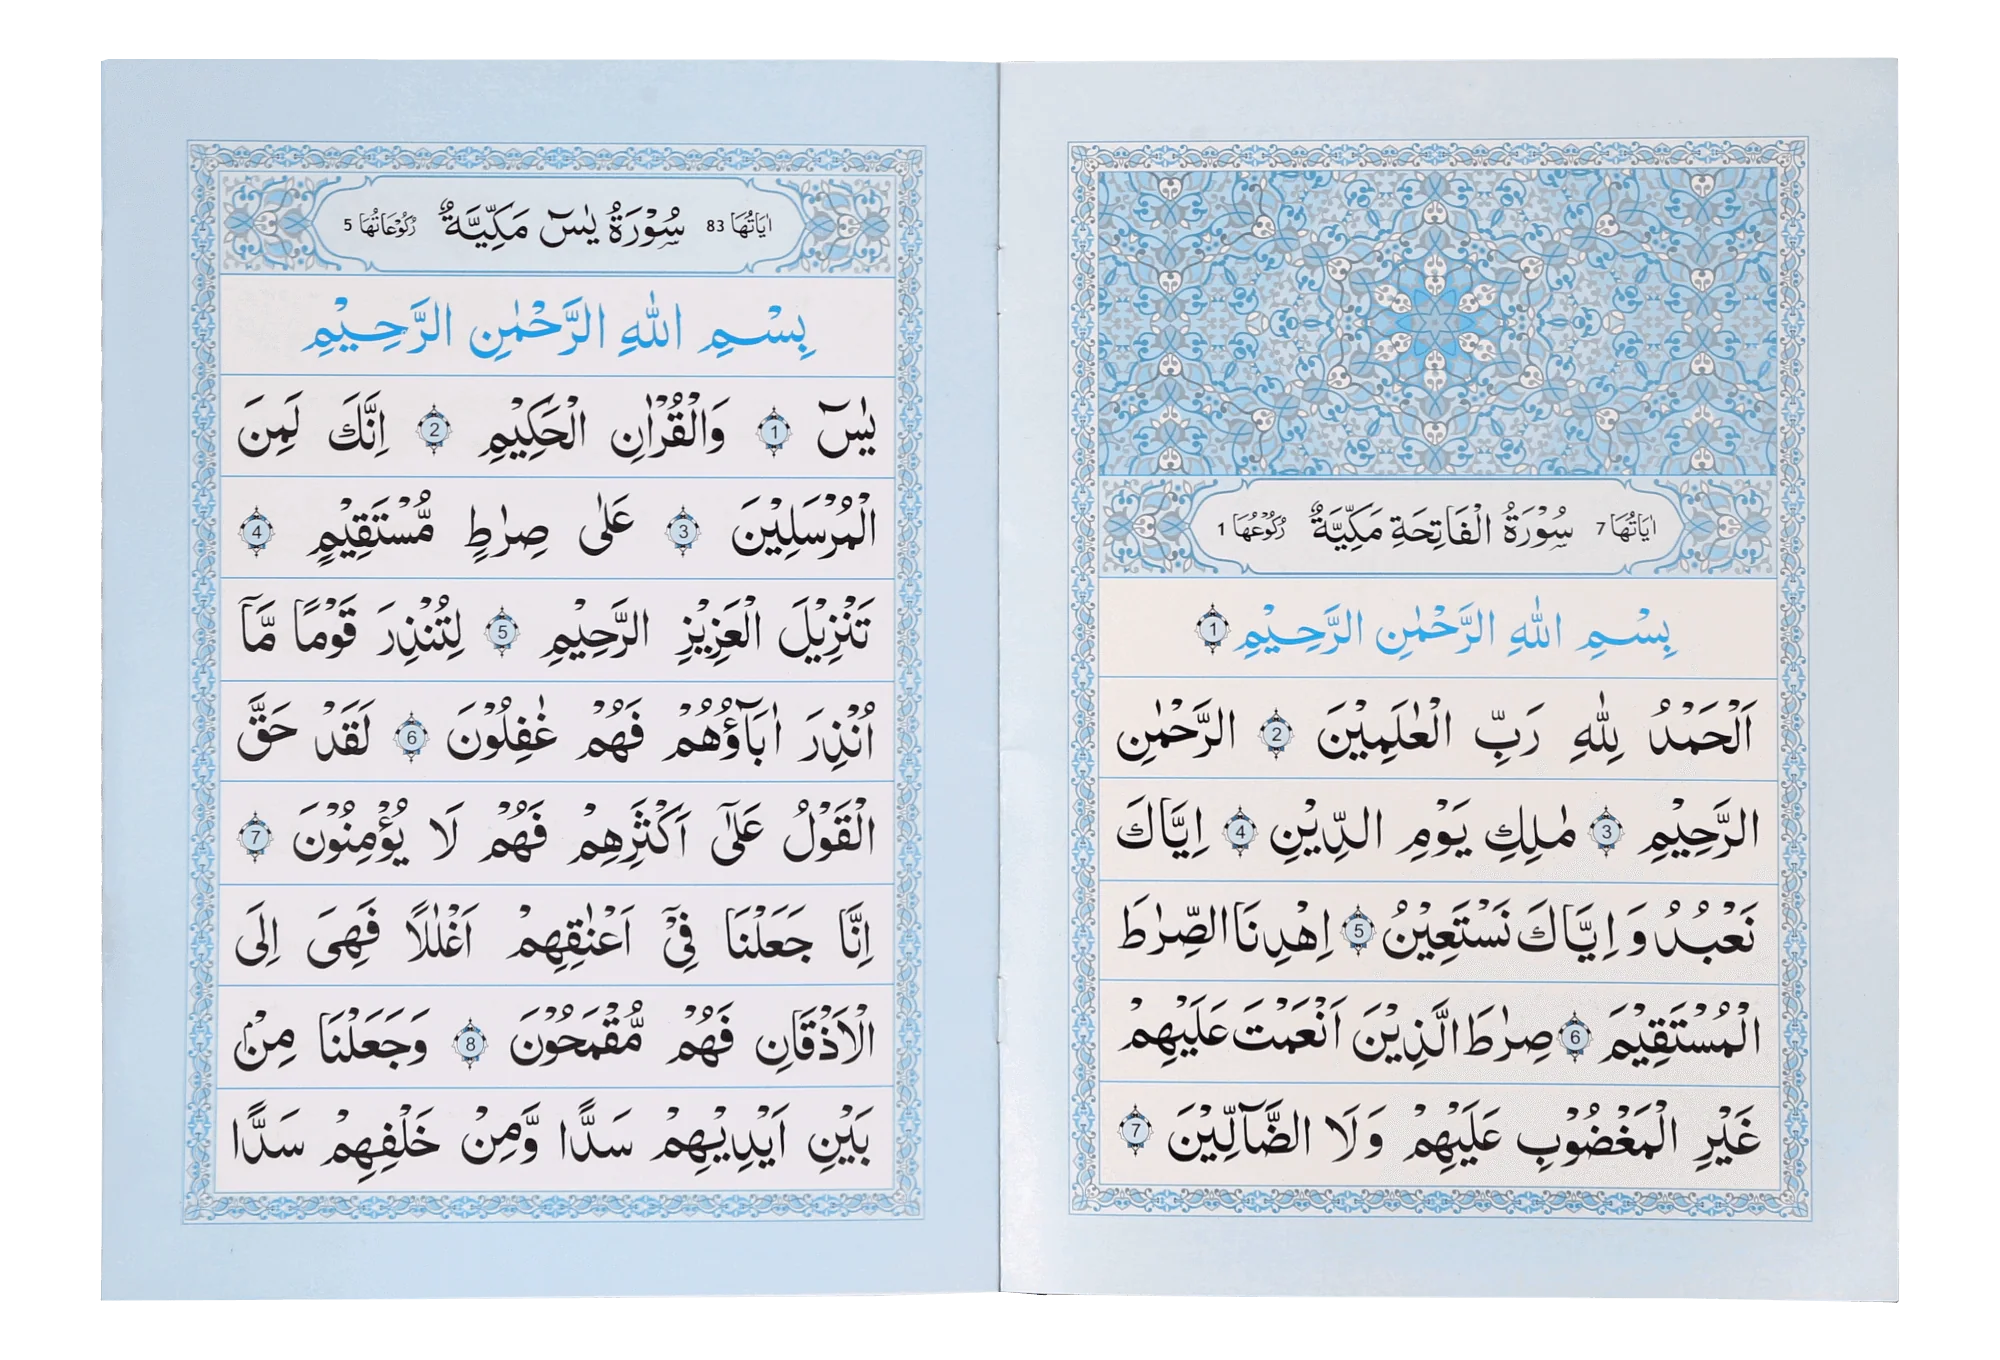 اٰيَاتُهَا 7 سُوْرَةُ الْفَاتِحَةِ مَكِّيَّةٌ رُكُوْعُهَا 1
بِسْمِ اللهِ الرَّحْمٰنِ الرَّحِيْمِ 1
اَلْحَمْدُ لِلّٰهِ رَبِّ الْعٰلَمِيْنَ 2 الرَّحْمٰنِ
الرَّحِيْمِ 3 مٰلِكِ يَوْمِ الدِّيْنِ 4 اِيَّاكَ
نَعْبُدُ وَ اِيَّاكَ نَسْتَعِيْنُ 5 اِهْدِنَا الصِّرٰطَ
الْمُسْتَقِيْمَ 6 صِرٰطَ الَّذِيْنَ اَنْعَمْتَ عَلَيْهِمْ
غَيْرِ الْمَغْضُوْبِ عَلَيْهِمْ وَلَا الضَّآلِّيْنَ 7
اٰيَاتُهَا 83 سُوْرَةُ يٰسٓ مَكِّيَّةٌ رُكُوْعَاتُهَا 5
بِسْمِ اللهِ الرَّحْمٰنِ الرَّحِيْمِ
يٰسٓ 1 وَالْقُرْاٰنِ الْحَكِيْمِ 2 اِنَّكَ لَمِنَ
الْمُرْسَلِيْنَ 3 عَلٰى صِرٰطٍ مُّسْتَقِيْمٍ 4
تَنْزِيْلَ الْعَزِيْزِ الرَّحِيْمِ 5 لِتُنْذِرَ قَوْمًا مَّآ
اُنْذِرَ اٰبَآؤُهُمْ فَهُمْ غٰفِلُوْنَ 6 لَقَدْ حَقَّ
الْقَوْلُ عَلٰٓى اَكْثَرِهِمْ فَهُمْ لَا يُؤْمِنُوْنَ 7
اِنَّا جَعَلْنَا فِيْٓ اَعْنٰقِهِمْ اَغْلٰلًا فَهِىَ اِلَى
الْاَذْقَانِ فَهُمْ مُّقْمَحُوْنَ 8 وَجَعَلْنَا مِنْۢ
بَيْنِ اَيْدِيْهِمْ سَدًّا وَّمِنْ خَلْفِهِمْ سَدًّا